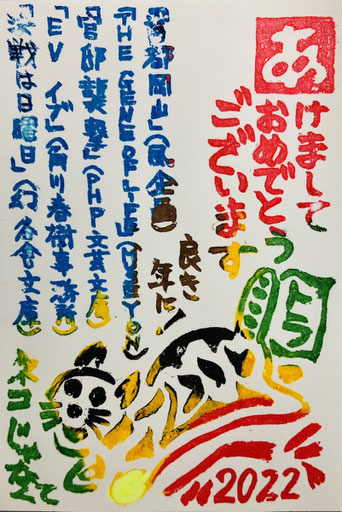 あけまして
おめでとう
ございます
良き
年に!
「首都岡山」(風企画)
「THE GENE OF LIFE」(MUSEYON)
「官邸襲撃」(PHP文芸文庫)
「EV イブ」(角川春樹事務所)
「決戦は日曜日」(幻冬舎文庫)
トラ
ネコじゃなくて
2022